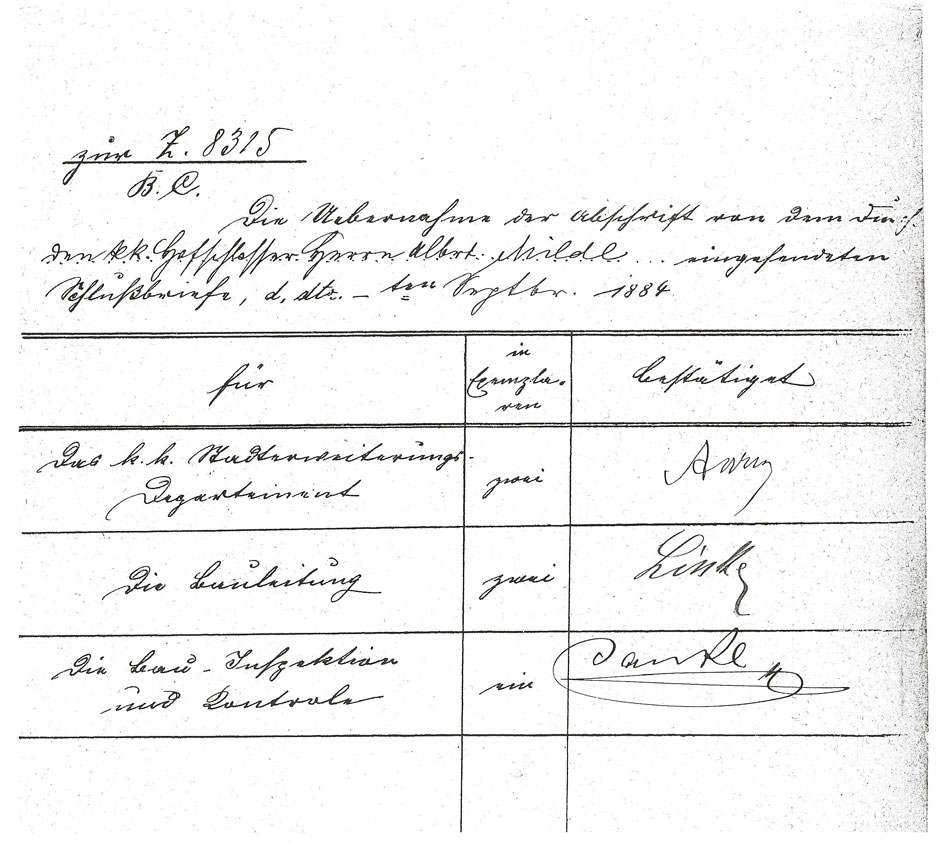 zur Z. 8315
B. C.
Die Uebernahme der Abschrift von dem durch
den kk. Hofschlosser Herrn Albert Milde ... eingesendeten
Schlußbriefe, d. dto. – ten Septbr. 1884
für
in
Exempla-
ren
bestätiget
Das k. k. Stadterweiterungs-
Departement
zwei
Die Bauleitung
zwei
Linke
Die Bau-Inspektion
und Kontrole
ein